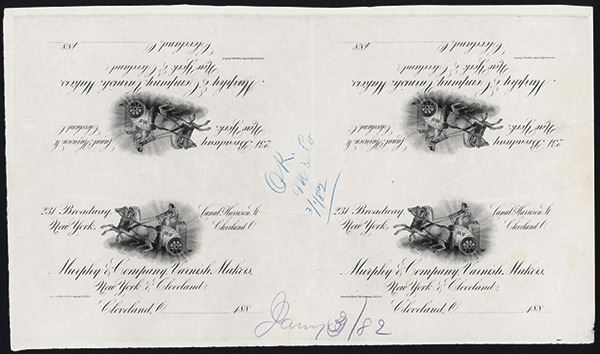 231 Broadway, Canal, Harrison St.
New York. Cleveland O.
Murphy & Company, Varnish Makers,
New York & Cleveland:
Cleveland, O. 188
231 Broadway, Canal, Harrison St.
New York. Cleveland O.
Murphy & Company, Varnish Makers,
New York & Cleveland:
Cleveland, O. 188
O.K.
M & Co
3/1/82
231 Broadway, Canal, Harrison St.
New York. Cleveland O.
Murphy & Company, Varnish Makers,
New York & Cleveland:
Cleveland, O. 188
231 Broadway, Canal, Harrison St.
New York. Cleveland O.
Murphy & Company, Varnish Makers,
New York & Cleveland:
Cleveland, O. 188
Jany 3/82